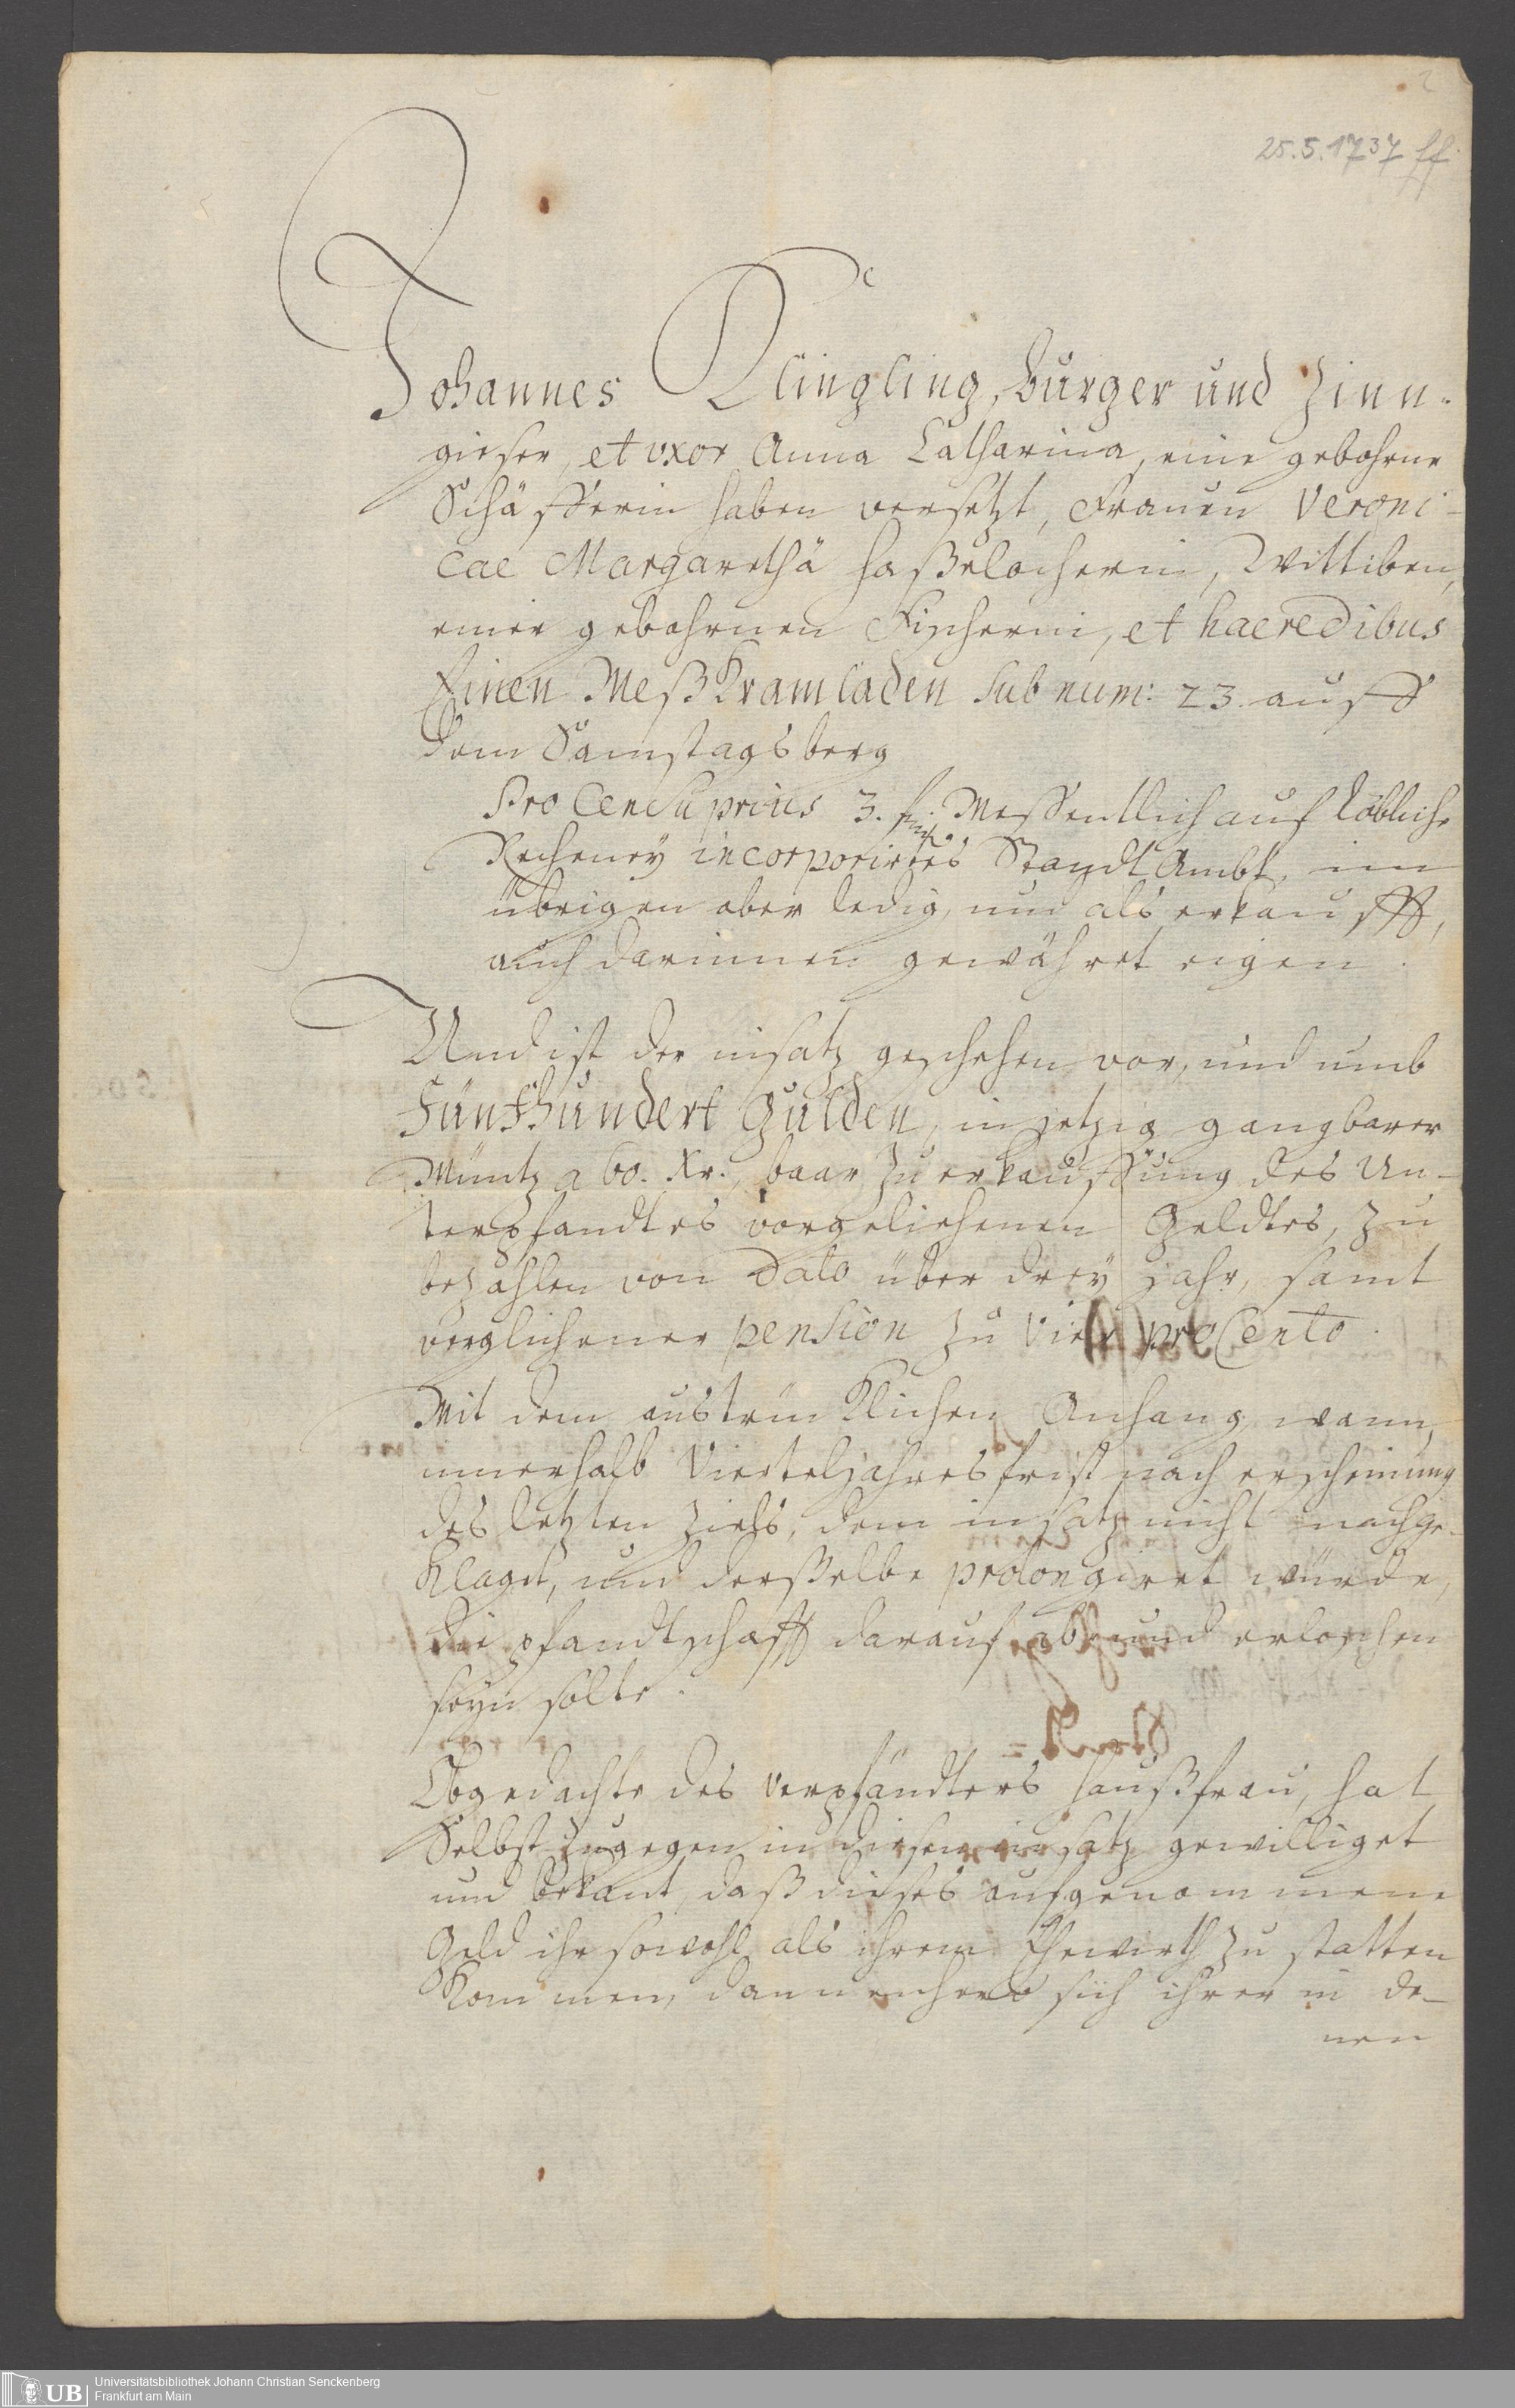 2
25.5.1737 ff.
Johannes Klingling, Burger und Zinn-
gieser, et uxor Anna Catharina, eine gebohrne
Schäfferin haben versetzt, Frauen Veroni-
cae Margarethä Haßelocherin, Wittiben,
einer gebohrnen Fischerin, et haeredibus
Einen Meß Kramladen sub num: 23. auff
dem Samstagsberg
Pro Censu prius 3. fl. Messentlich auf Löbliche
Recheney incorporirtes Standt Ambt, im
übrigen aber ledig, und als erkaufft,
auch darinnen gewähret eigen.
Und ist der insatz geschehen vor, und umb
Fünfhundert Gulden, in jetzig gangbarer
Müntz a 60. Xr., baar zu erkauffung des Un-
terpfandtes vorgeliehenen Geldtes, zu
bezahlen von Dato über drey Jahr, samt
verglichener pension zu Vier pro Cento.
Mit dem austrücklichen Anhang, wann,
innerhalb Vierteljahresfrist nach erscheinung
des letzten Ziels, dem insatz nicht nachge-
klagt, und derßelbe prolongiret würde,
die pfandtschafft darauf ab- und erloschen
seyn solte.
Obgedachte des Verpfändters Haußfrau, hat
Selbst zugegen in diesen insatz gewilliget
und bekant, daß dieses aufgenommene
Geld ihr sowohl als ihrem Ehewirth zu statten
kommen, dannenhero sich ihrer in de-
nen
UB Universitätsbibliothek Johann Christian Senckenberg
Frankfurt am Main